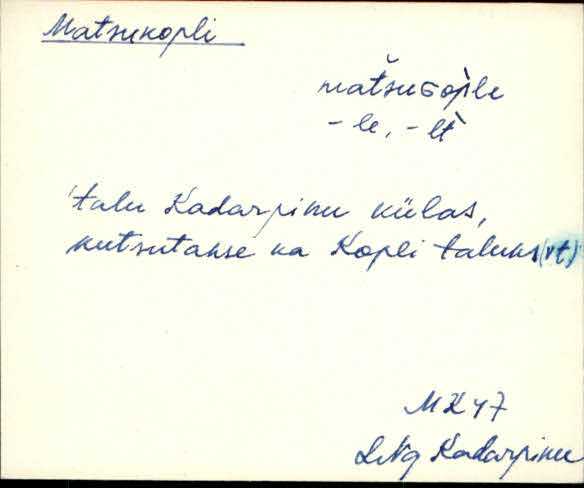 Matsukopli
matsuGople
-le, -lt
talu Kadarpiku külas,
kutsutakse ka Kopli taluks (vt)
MK 47
LNg Kadarpiku